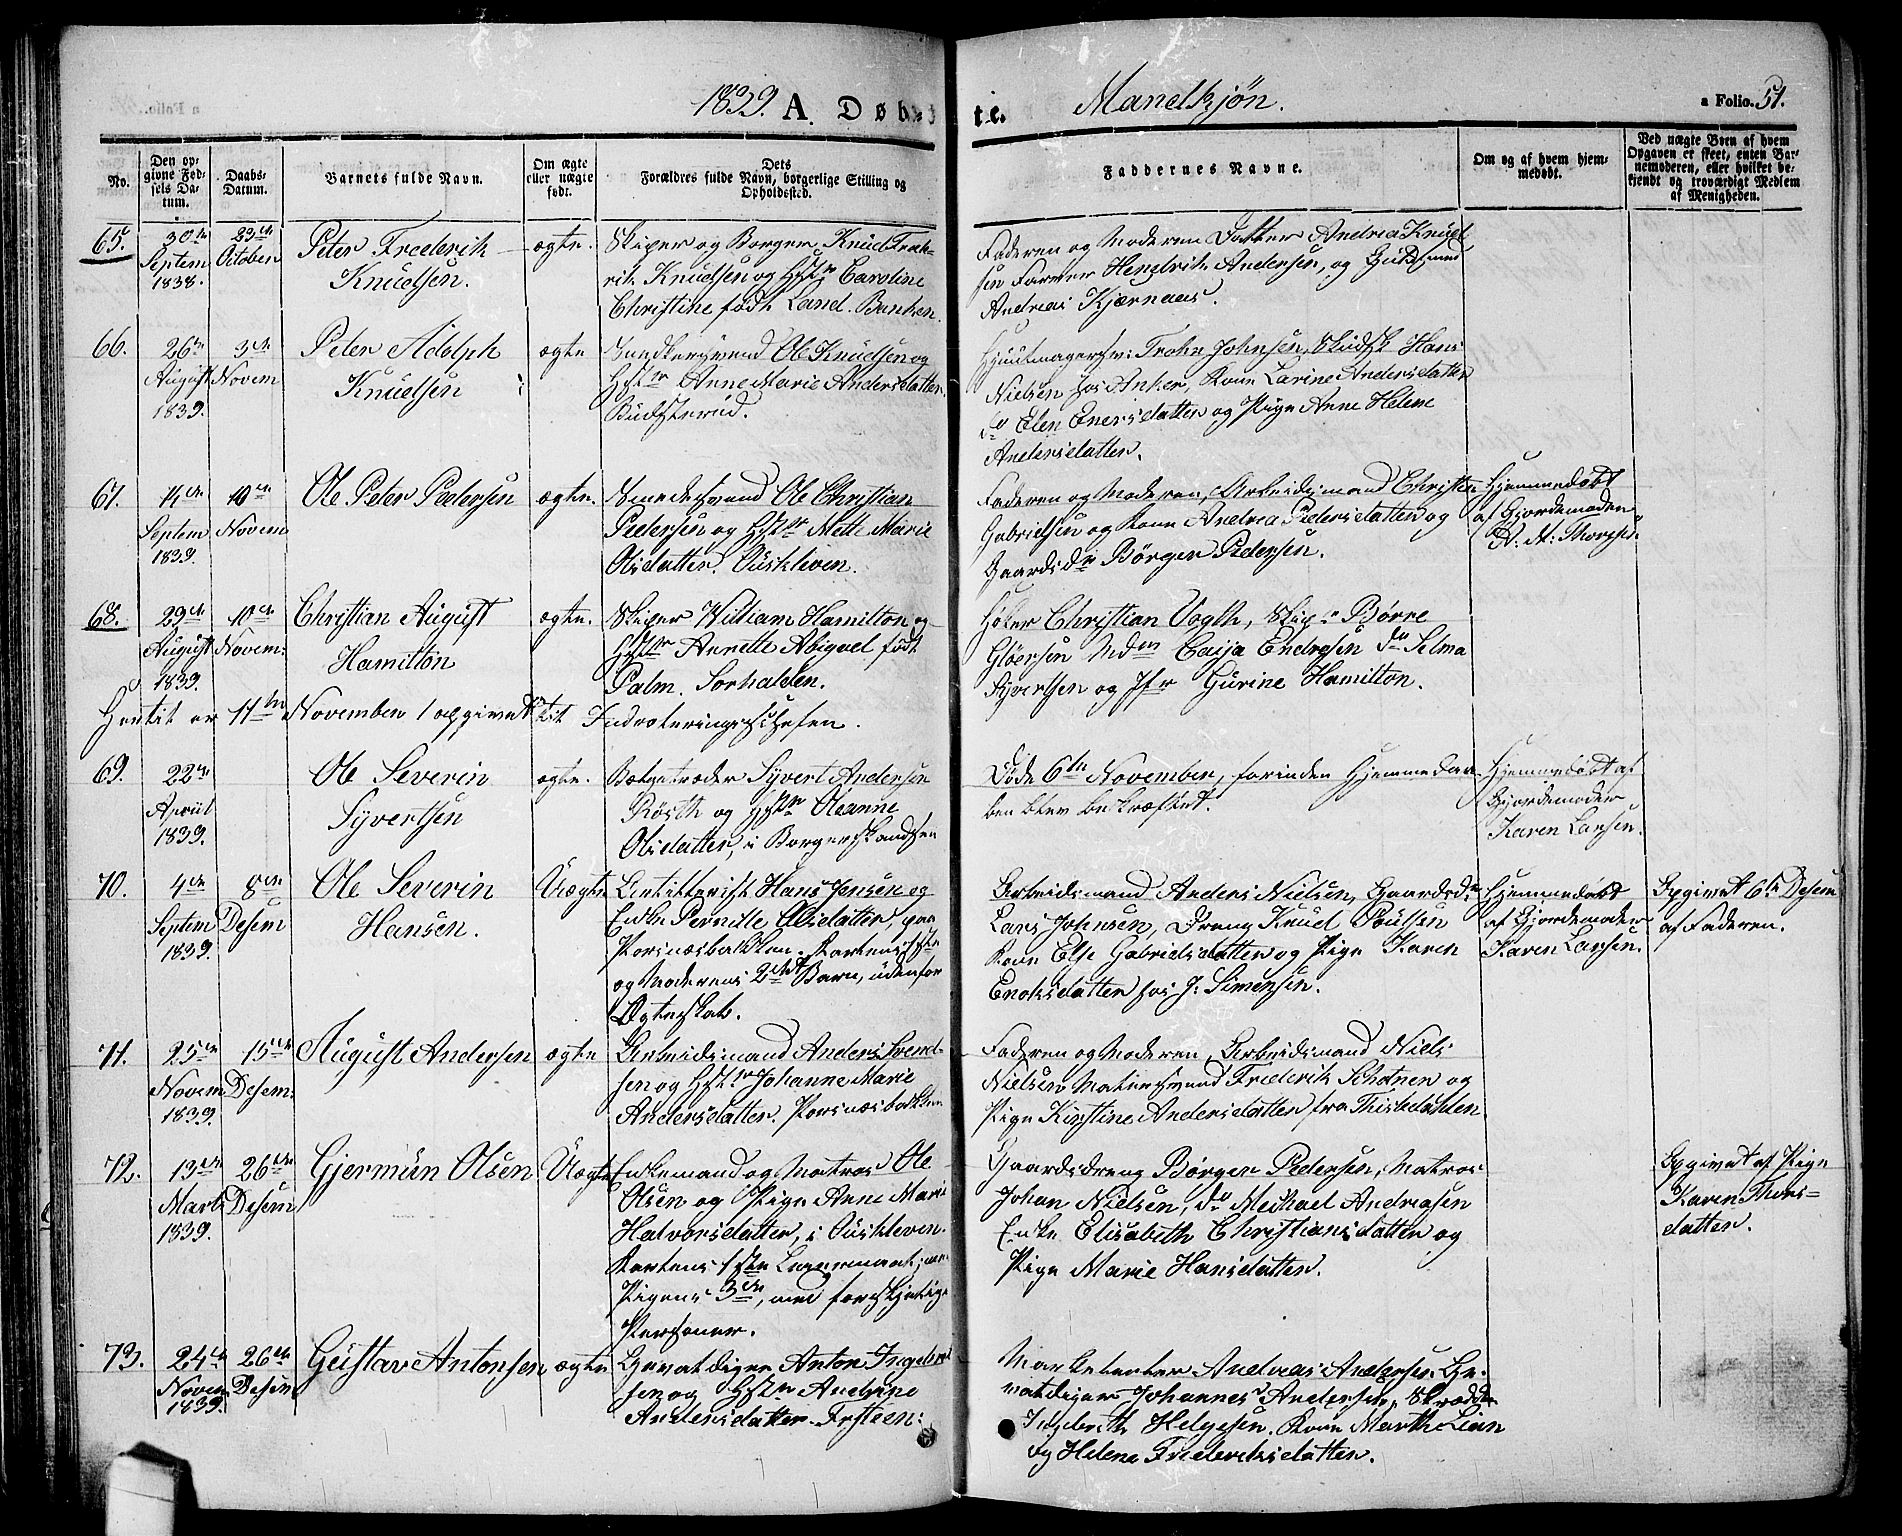 1839. A. Døbte. Mandkjøn. a Folio. 51.
No.
Den opgivne Fødsels Datum.
Daabs-Datum.
Barnets fulde Navn.
Om ægte eller uægte født.
Dets Forældres fulde Navn, borgerlige Stilling og Opholdssted.
Faddernes Navne.
Om og af hvem hjemmedøbt.
Ved uægte Børn af hvem Opgaven er skeet, enten Barnemoderen, eller hvilket bekjendt og troværdigt Medlem af Menigheden.
65.
30te Septem 1838.
23de October
Peter Frederik
Knudsen.
ægte.
Skiper og Borger Knud Frede-
rik Knudsen og Hstr Caroline
Christine født Lund. Banken.
Faderen og Moderen Datter Andrea Knud
sen Farver Hendrik Andersen, og Guldsmed
Andreas Kjærnaas.
66.
26de August 1839.
3die Novem
Peter Adolph
Knudsen
ægte
Snedkersvend Ole Knudsen og
Hstr Anne Marie Andersdatter
Budsterud.
Johnsen, Hans
Nielsen hos Anker, Kone Larine Andersdatter
do Elen Enersdatter og Pige Anne Helene
Andersdatter.
67.
14de Septem 1839.
10de Novem
Ole Peter Pedersen
ægte.
Smedesvend Ole Christian
Pedersen og Hstr Mette Marie
Olsdatter. Ouskleven.
Faderen og Moderen, Arbeidsmand Christen
Gabrielsen og Kone Andrea Pedersdatter og
Gaardsdr Børger Pedersen.
Hjemmedøbt
af Gjordemoder
Thoresen
68.
29de August 1839.
10de Novem:
Christian August
Hamilton
ægte.
Skiper William Hamilton og
Hstr Annette Abigael født
Palm. Sorhalden.
Høker Christian Vogth, Skipr Børre
Gløersen Mdm Caija Endresen do Selma
Syvertsen og Jfr Gurine Hamilton.
Hertil er 11te November 1 opgivet til Indroteringschefen.
69.
22de April 1839.
Ole Severin
Syvertsen
ægte.
Syvert Andersen
Røsth og Hstr Oleanne
Olsdatter, i Borgerskandsen
Døde 6te November, forinden Hjemmedaa-
ben blev bekræftet.
Hjemmedøbt af
Gjordemoder
Karen Larsen.
70.
4de Septem 1839.
8de Desem
Ole Severin
Hansen.
Uægte
Artillerist Hans Jensen og
Enke Pernille Olsdatter, paa
Porsnæsbakken. Karlens 1ste
og Moderens 2det Barn, udenfor
Ægteskab.
Arbeidsmand Anders Nielsen, Gaardsdr
Lars Johnsen, Dreng Knud Poulsen
Kone Else Gabrielsdatter og Pige Karen
Enoksdatter hos J. Simensen.
Hjemmedøbt
af Gjordemoder
Karen Larsen.
Opgivet 6te Desem
af Faderen.
71.
25de Novem 1839.
15de Desem:
August Andersen
ægte
Arbeidsmand Anders Svend-
sen og Hstr Johanne Marie
Andersdatter. Porsnæsbakken
Faderen og Moderen, Arbeidsmand Niels
Nielsen, Malersvend Frederik Schotner og
Pige Kirstine Andersdatter fra Thistedahlen.
72.
13de Marts 1839.
26de Desem
Gjermun Olsen
Uægte
Enkemand og Matros Ole
Olsen og Pige Anne Marie
Halvorsdatter, i Ouskleven.
Karlens 1ste Leiermaal,
Pigens 3die, med forskjellige
Personer.
Gaardsdreng Børger Pedersen, Matros
Johan Nielsen, do Michael Andreasen
Enke Elisabeth Christiansdatter og
Pige Marie Hansdatter.
Opgivet af Pige
Karen Thors-
datter.
73.
24de Novem 1839.
26de Desem
Gustav Antonsen
ægte
Gevaldiger Anton Ingebret
sen og Hstr Andrine
Andersdatter.
Marketenter Andreas Andersen, Ge-
valdiger Johannes Andersen, Skrædder
Ingebreth Helgesen, Kone Marthe Lian
og Helena Frederiksdatter.